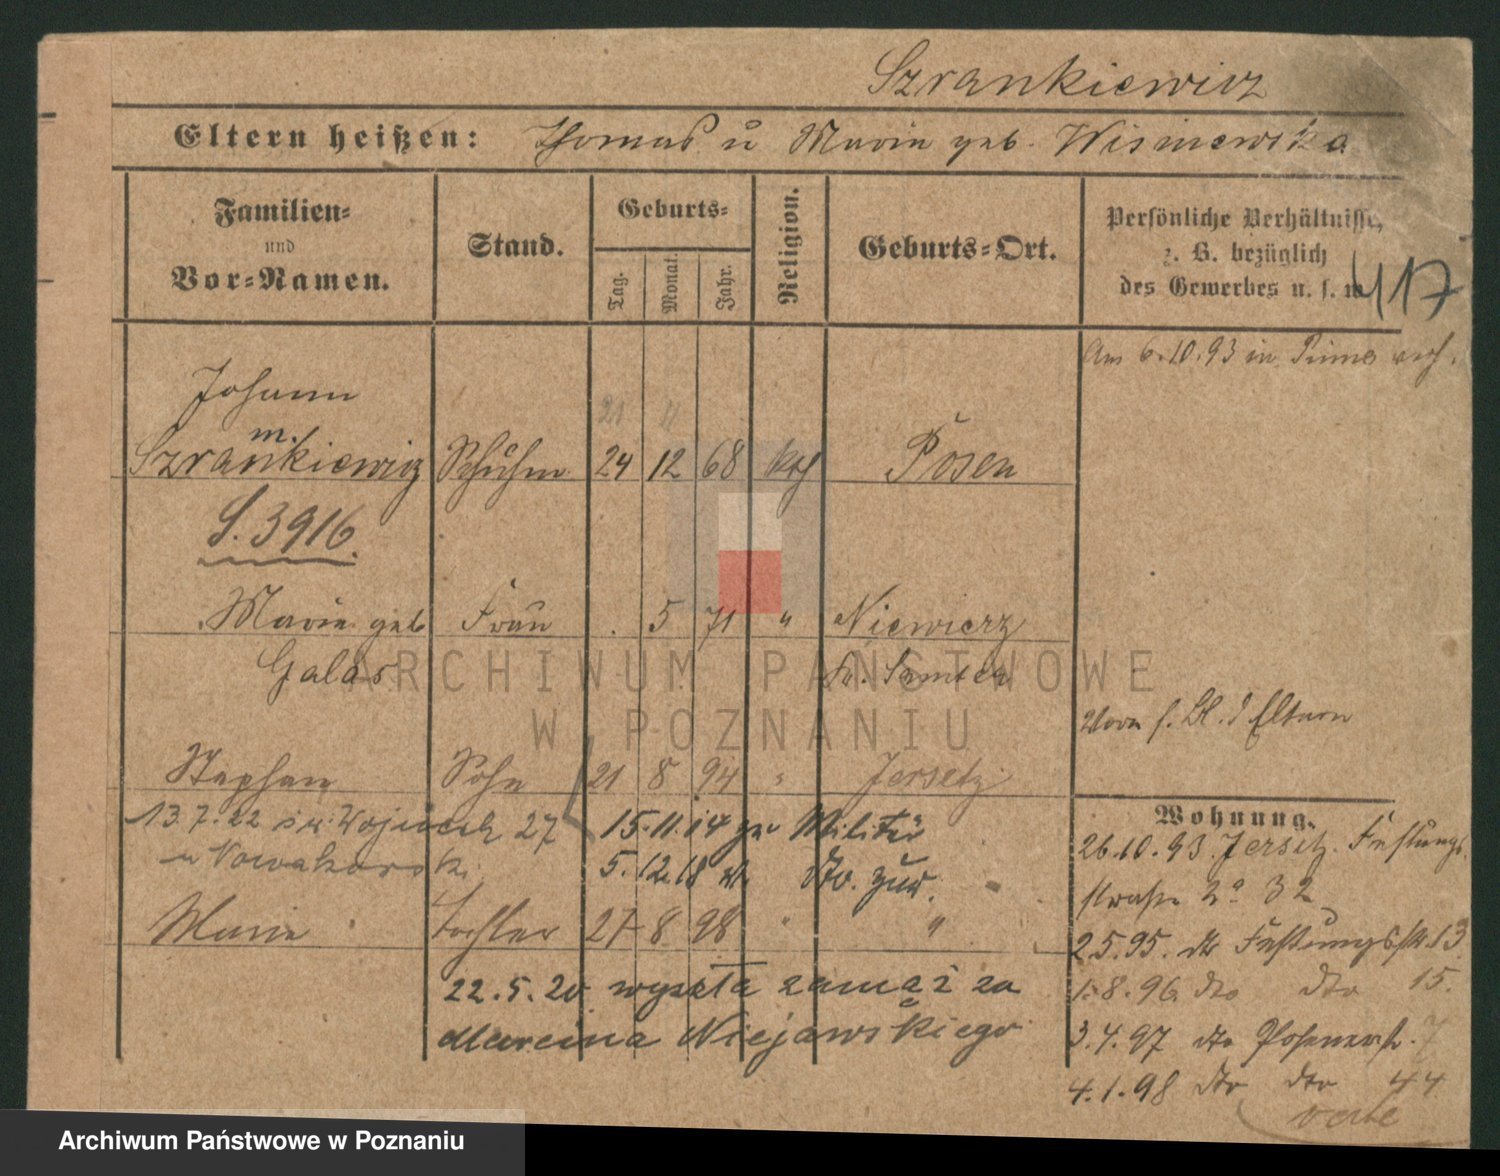 Szrankiewicz
Eltern heißen: Thomas u Marie geb. Wisniewska
Familien-
und
Vor-Namen.
Stand.
Geburts-
Tag. Monat. Jahr.
Religion.
Geburts-Ort.
Persönliche Verhältnisse,
z. B. bezüglich
des Gewerbes u. s. w.
417
Am 6.10.93 in Pinne verh.
Johann
21 11
m.
Szrankiewicz Schuhm 24 12 68 kth Posen
S. 3916.
Marie geb Frau . 5 71 " Niewierz
Galas Kr. Samter
Vorn f. Bl. d Eltern
Stephan Sohn 21 8 94 " Jersetz
13.7.22 św. Wojciech 27 15.11.14 zu Militär
u Nowakowski 5.12.18 v. dto. zur.
Marie Tochter 27 8 98 " "
22.5.20 wyszła zamąż za
Marcina Niejawskiego
Wohnung.
26.10.93. Jersitz. Festungs
straße No 32
2.5.95. dto Festungsstr. 13
1.8.96 dto dto 15.
3.4.97 dto Posenerst. 7
4.1.98 dto dto 44
verte
ARCHIWUM PAŃSTWOWE
W POZNANIU
Archiwum Państwowe w Poznaniu